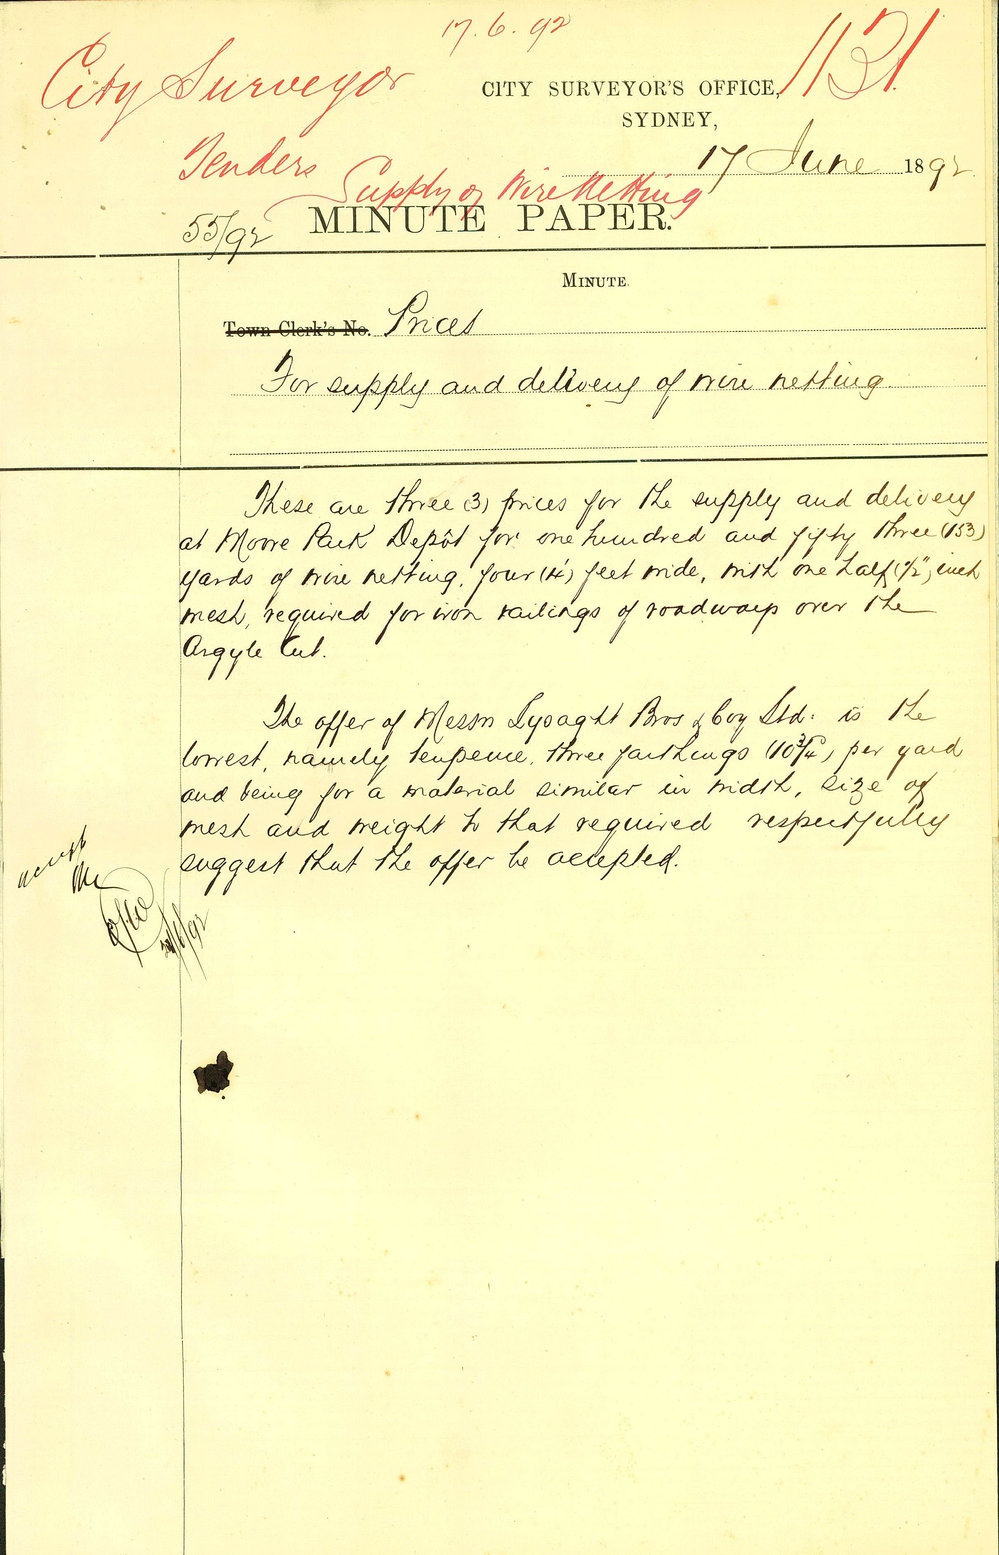 17.6.92
City Surveyor
1131
CITY SURVEYOR'S OFFICE,
SYDNEY,
17 June 1892
Tenders
Supply of Wire Netting
55/92
MINUTE PAPER.
MINUTE.
Town Clerk's No. Prices
For supply and delivery of wire netting
These are three (3) prices for the supply and delivery
at Moore Park Depôt for one hundred and fifty three (153)
yards of wire netting, four (4') feet wide, with one half (½") inch
mesh, required for iron railings of roadways over the
Argyle Cut.
The offer of Messrs Lysaght Bros & Coy Ltd: is the
lowest, namely tenpence, three farthings (10¾) per yard
and being for a material similar in width, size of
mesh and weight to that required respectfully
suggest that the offer be accepted.
accept
20/6/92